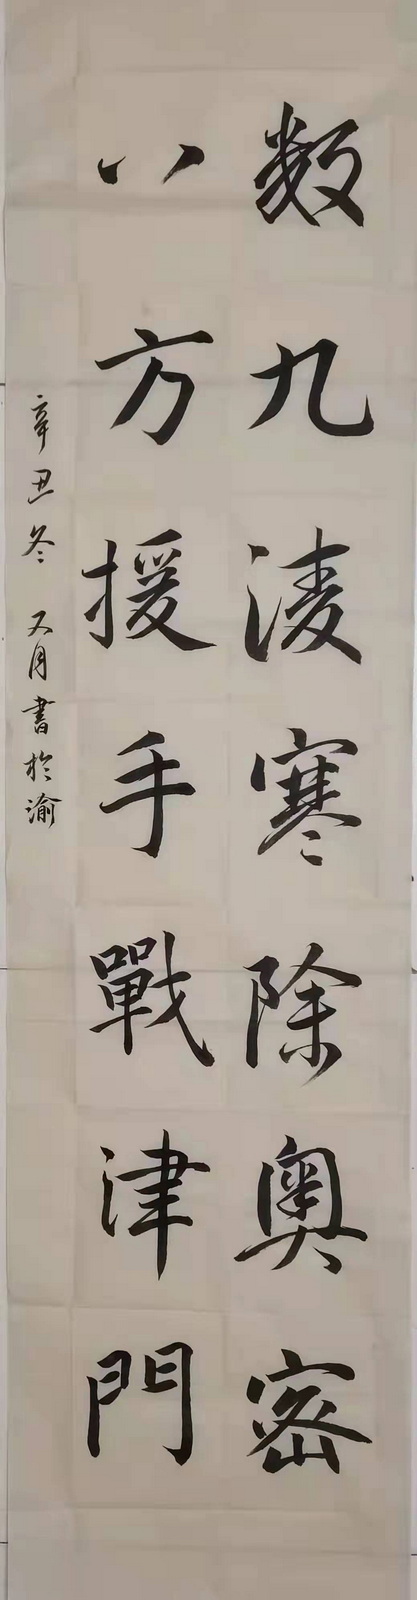 数九凌寒除奥密
八方援手戰津門
辛丑冬 又月書於渝